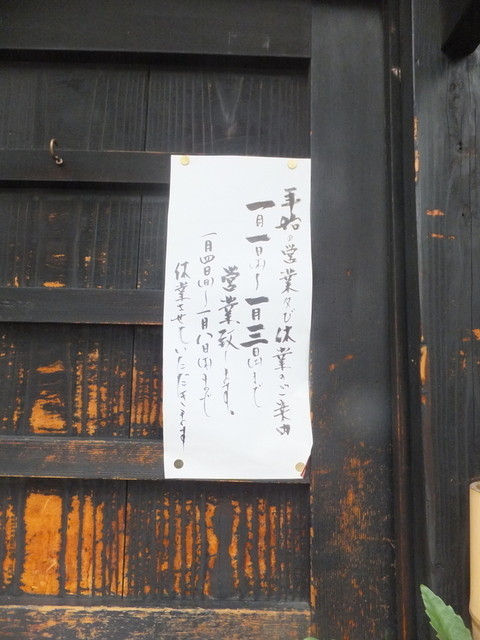 年始の営業及び休業のご案内
一月一日(木)〜一月三日(土)まで
営業致します。
一月四日(日)〜一月八日(木)まで
休業させていただきます